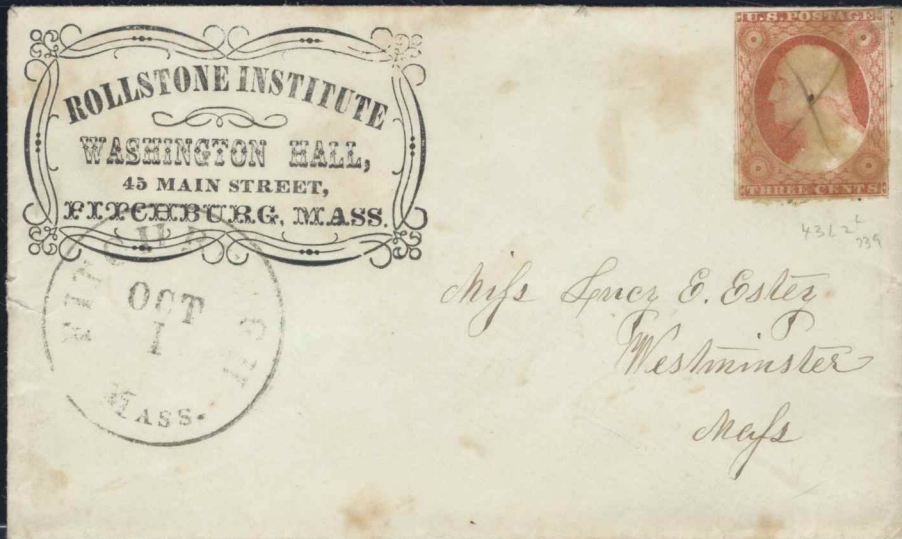 ROLLSTONE INSTITUTE
WASHINGTON HALL,
45 MAIN STREET,
FITCHBURG, MASS.
U.S. POSTAGE
THREE CENTS
FITCHBURG
OCT
1
MASS.
Miſs Lucy E. Estey
Westminster
Maſs